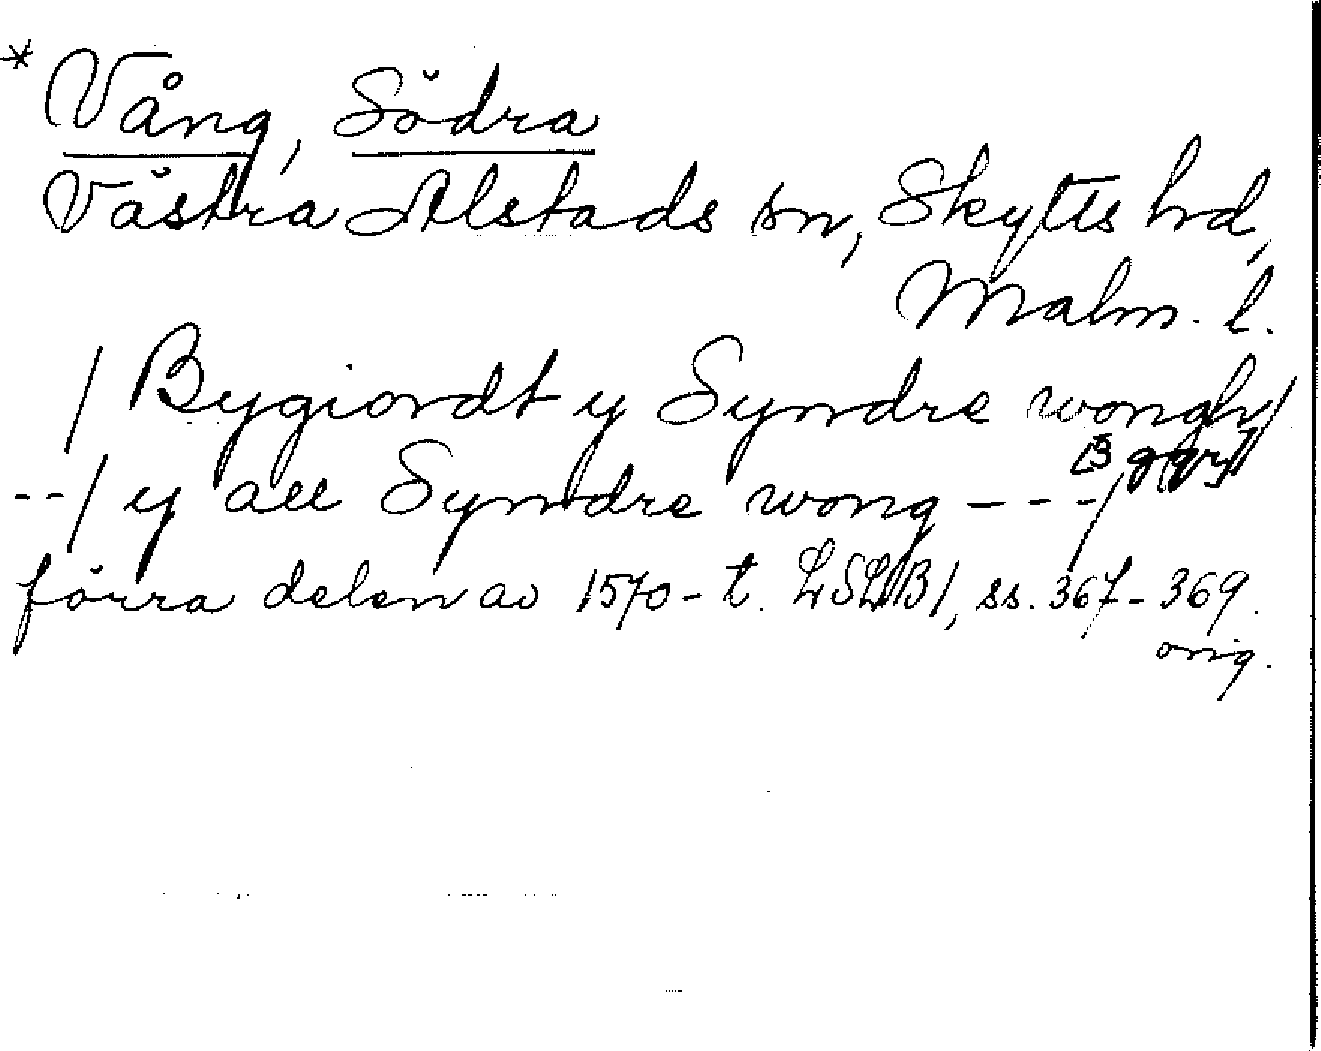 * Vång, Södra
Västra Alstads sn, Skytts hd,
Malm. l.
/ Bygiordt y Syndre wongh/
--/ y all Syndre wong ---/
förra delen av 1570-t. LSLB1, ss. 367-369.
orig.